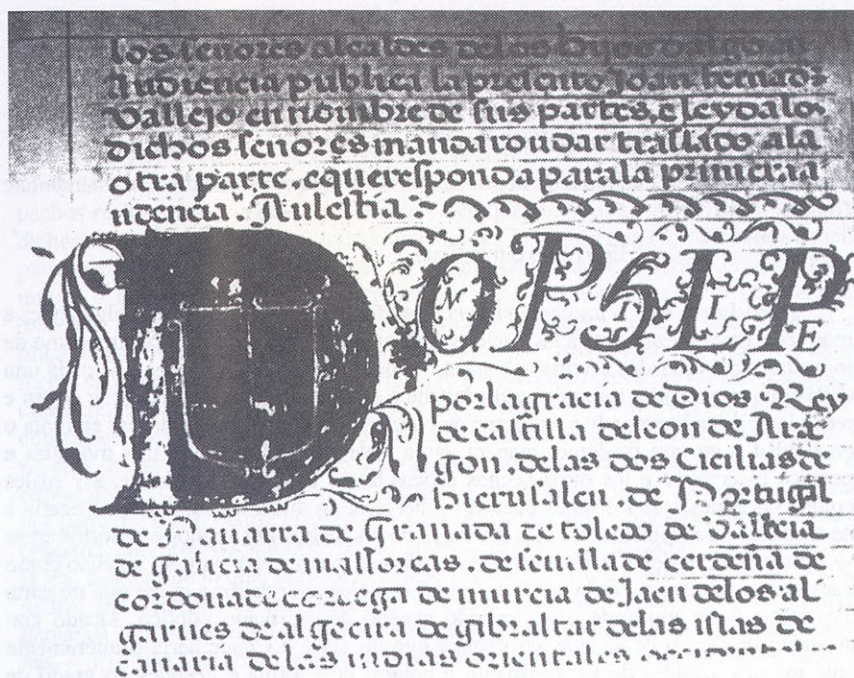 los señores alcaldes de los hijos dalgo en
Audiencia publica la presento Joan
Vallejo en nombre de sus partes, e leyda lo
dichos señores mandaron dar traslado a la
otra parte e que responda para la primera a
udencia
DON PHELIPE
por la gracia de Dios Rey
de castilla de leon de Ara
gon, de las dos Cicilias de
hierusalen de Portugal
de Nauarra de Granada de toledo de Valēcia
de galicia de mallorcas, de seuilla de cerdeña de
cordoua de corcega de murcia de Jaen de los al
garues de algecira de gibraltar de las islas de
canaria de las indias orientales